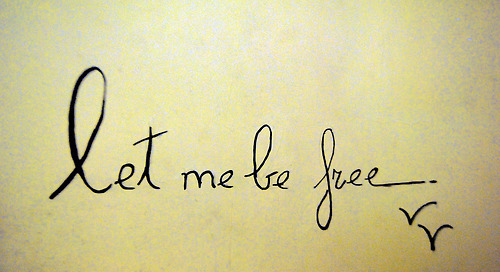 let me be free.